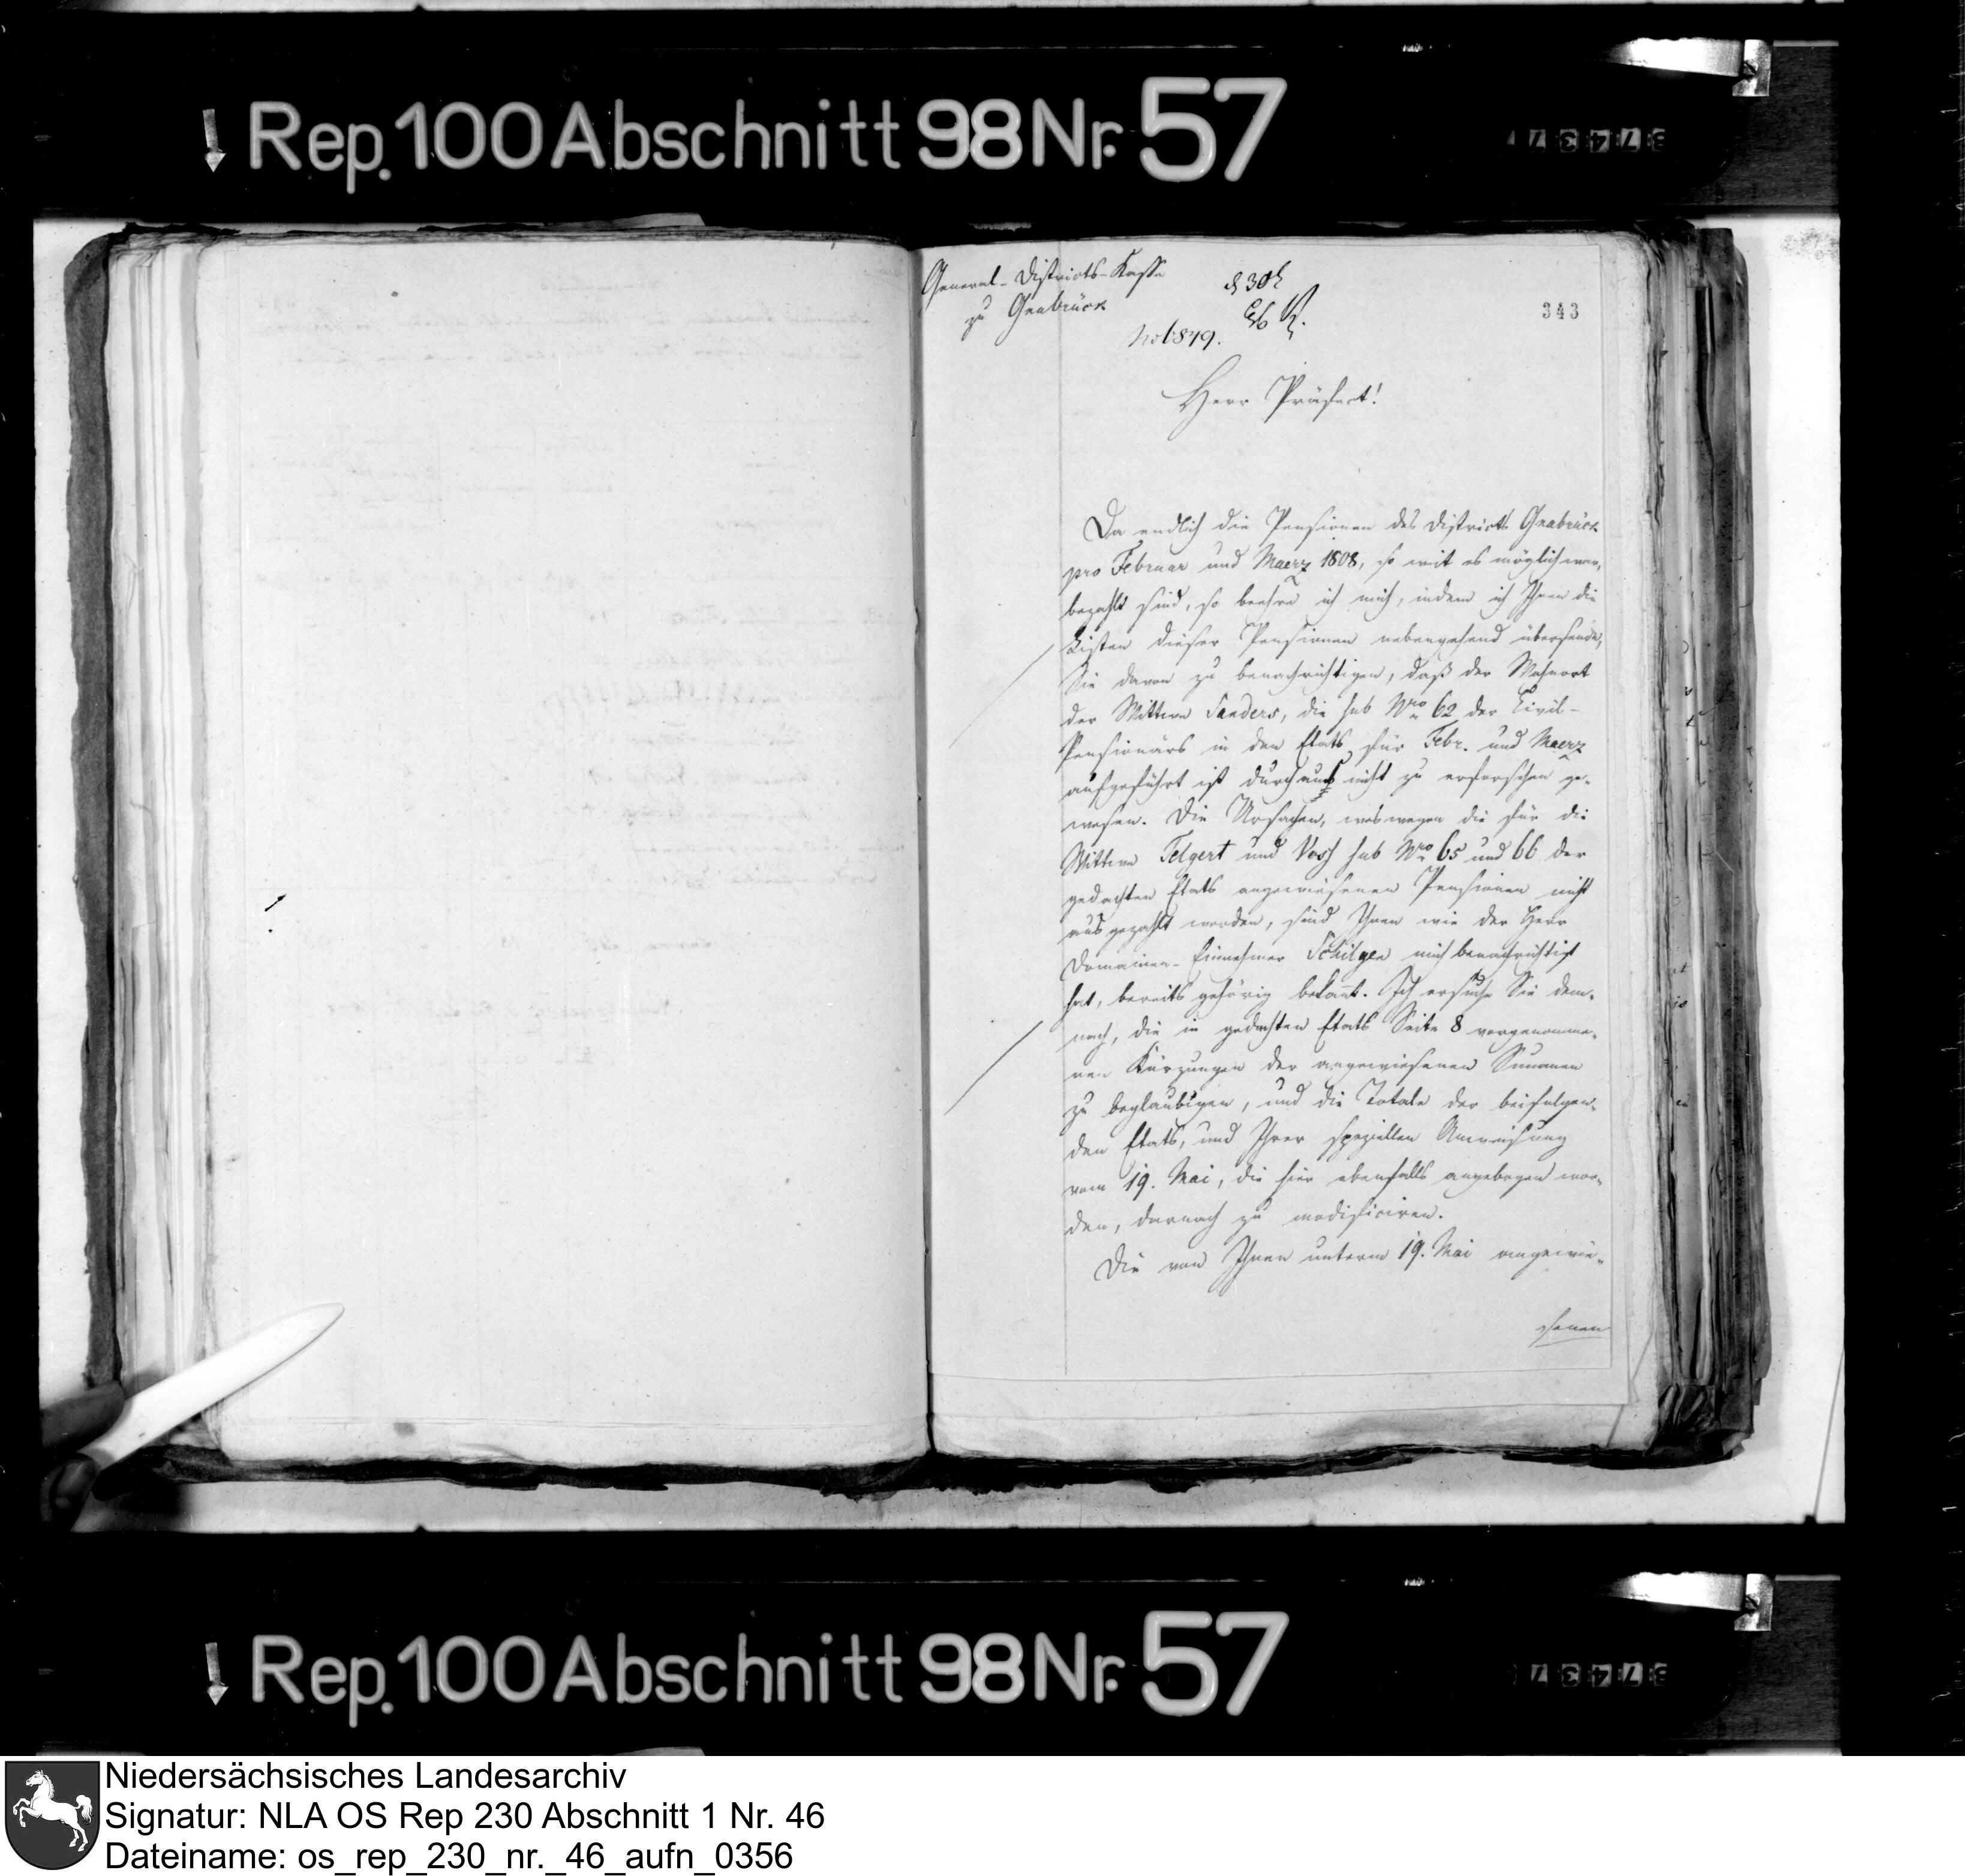 Rep. 100 Abschnitt 98 Nr. 57
General-Districts-Kasse
zu Osnabrück
343
Herr Präfect!
Da endlich die Pensionen des Districts Osnabrück
pro Februar und Maerz 1808, so weit es möglich war,
bezahlt sind, so beehre ich mich, indem ich Ihnen die
Listen dieser Pensionen nebengehend übersende,
Sie davon zu benachrichtigen, daß der Wohnort
der Wittwe Sanders, die sub Nro 62 der Civil-
Pensionärs in den Etats für Febr. und Maerz
aufgeführt ist durchaus nicht zu erforschen ge-
wesen. Die Ursachen, weswegen die für die
Wittwe Felgert und Voss sub Nro 65 und 66 der
gedachten Etats angewiesenen Pensionen nicht
ausgezahlt worden, sind Ihnen wie der Herr
Domainen-Einnehmer Schilgen mich benachrichtigt
hat, bereits gehörig bekannt. Ich ersuche Sie dem-
nach, die in gedachten Etats Seite 8 vorgenomme-
nen Kürzungen der angewiesenen Summen
zu beglaubigen, und die Totale der beifolgen-
den Etats, und Ihrer speziellen Anweisung
vom 19. Mai, die hier ebenfalls angebogen wor-
den, darnach zu modificiren.
Die von Ihnen unterm 19. Mai angewie-
senen
Rep. 100 Abschnitt 98 Nr. 57
Niedersächsisches Landesarchiv
Signatur: NLA OS Rep 230 Abschnitt 1 Nr. 46
Dateiname: os_rep_230_nr._46_aufn_0356